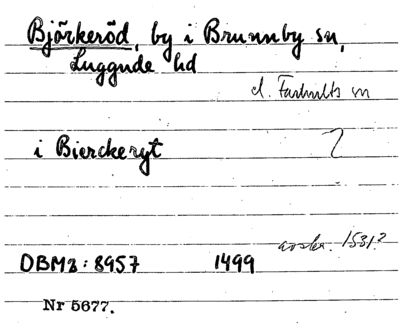 Björkeröd, by i Brunnby sn,
Luggude hd
el. Farhults sn
i Bierckeryt
?
avskr. 1531?
DBM3: 8957 1499
Nr 5677.